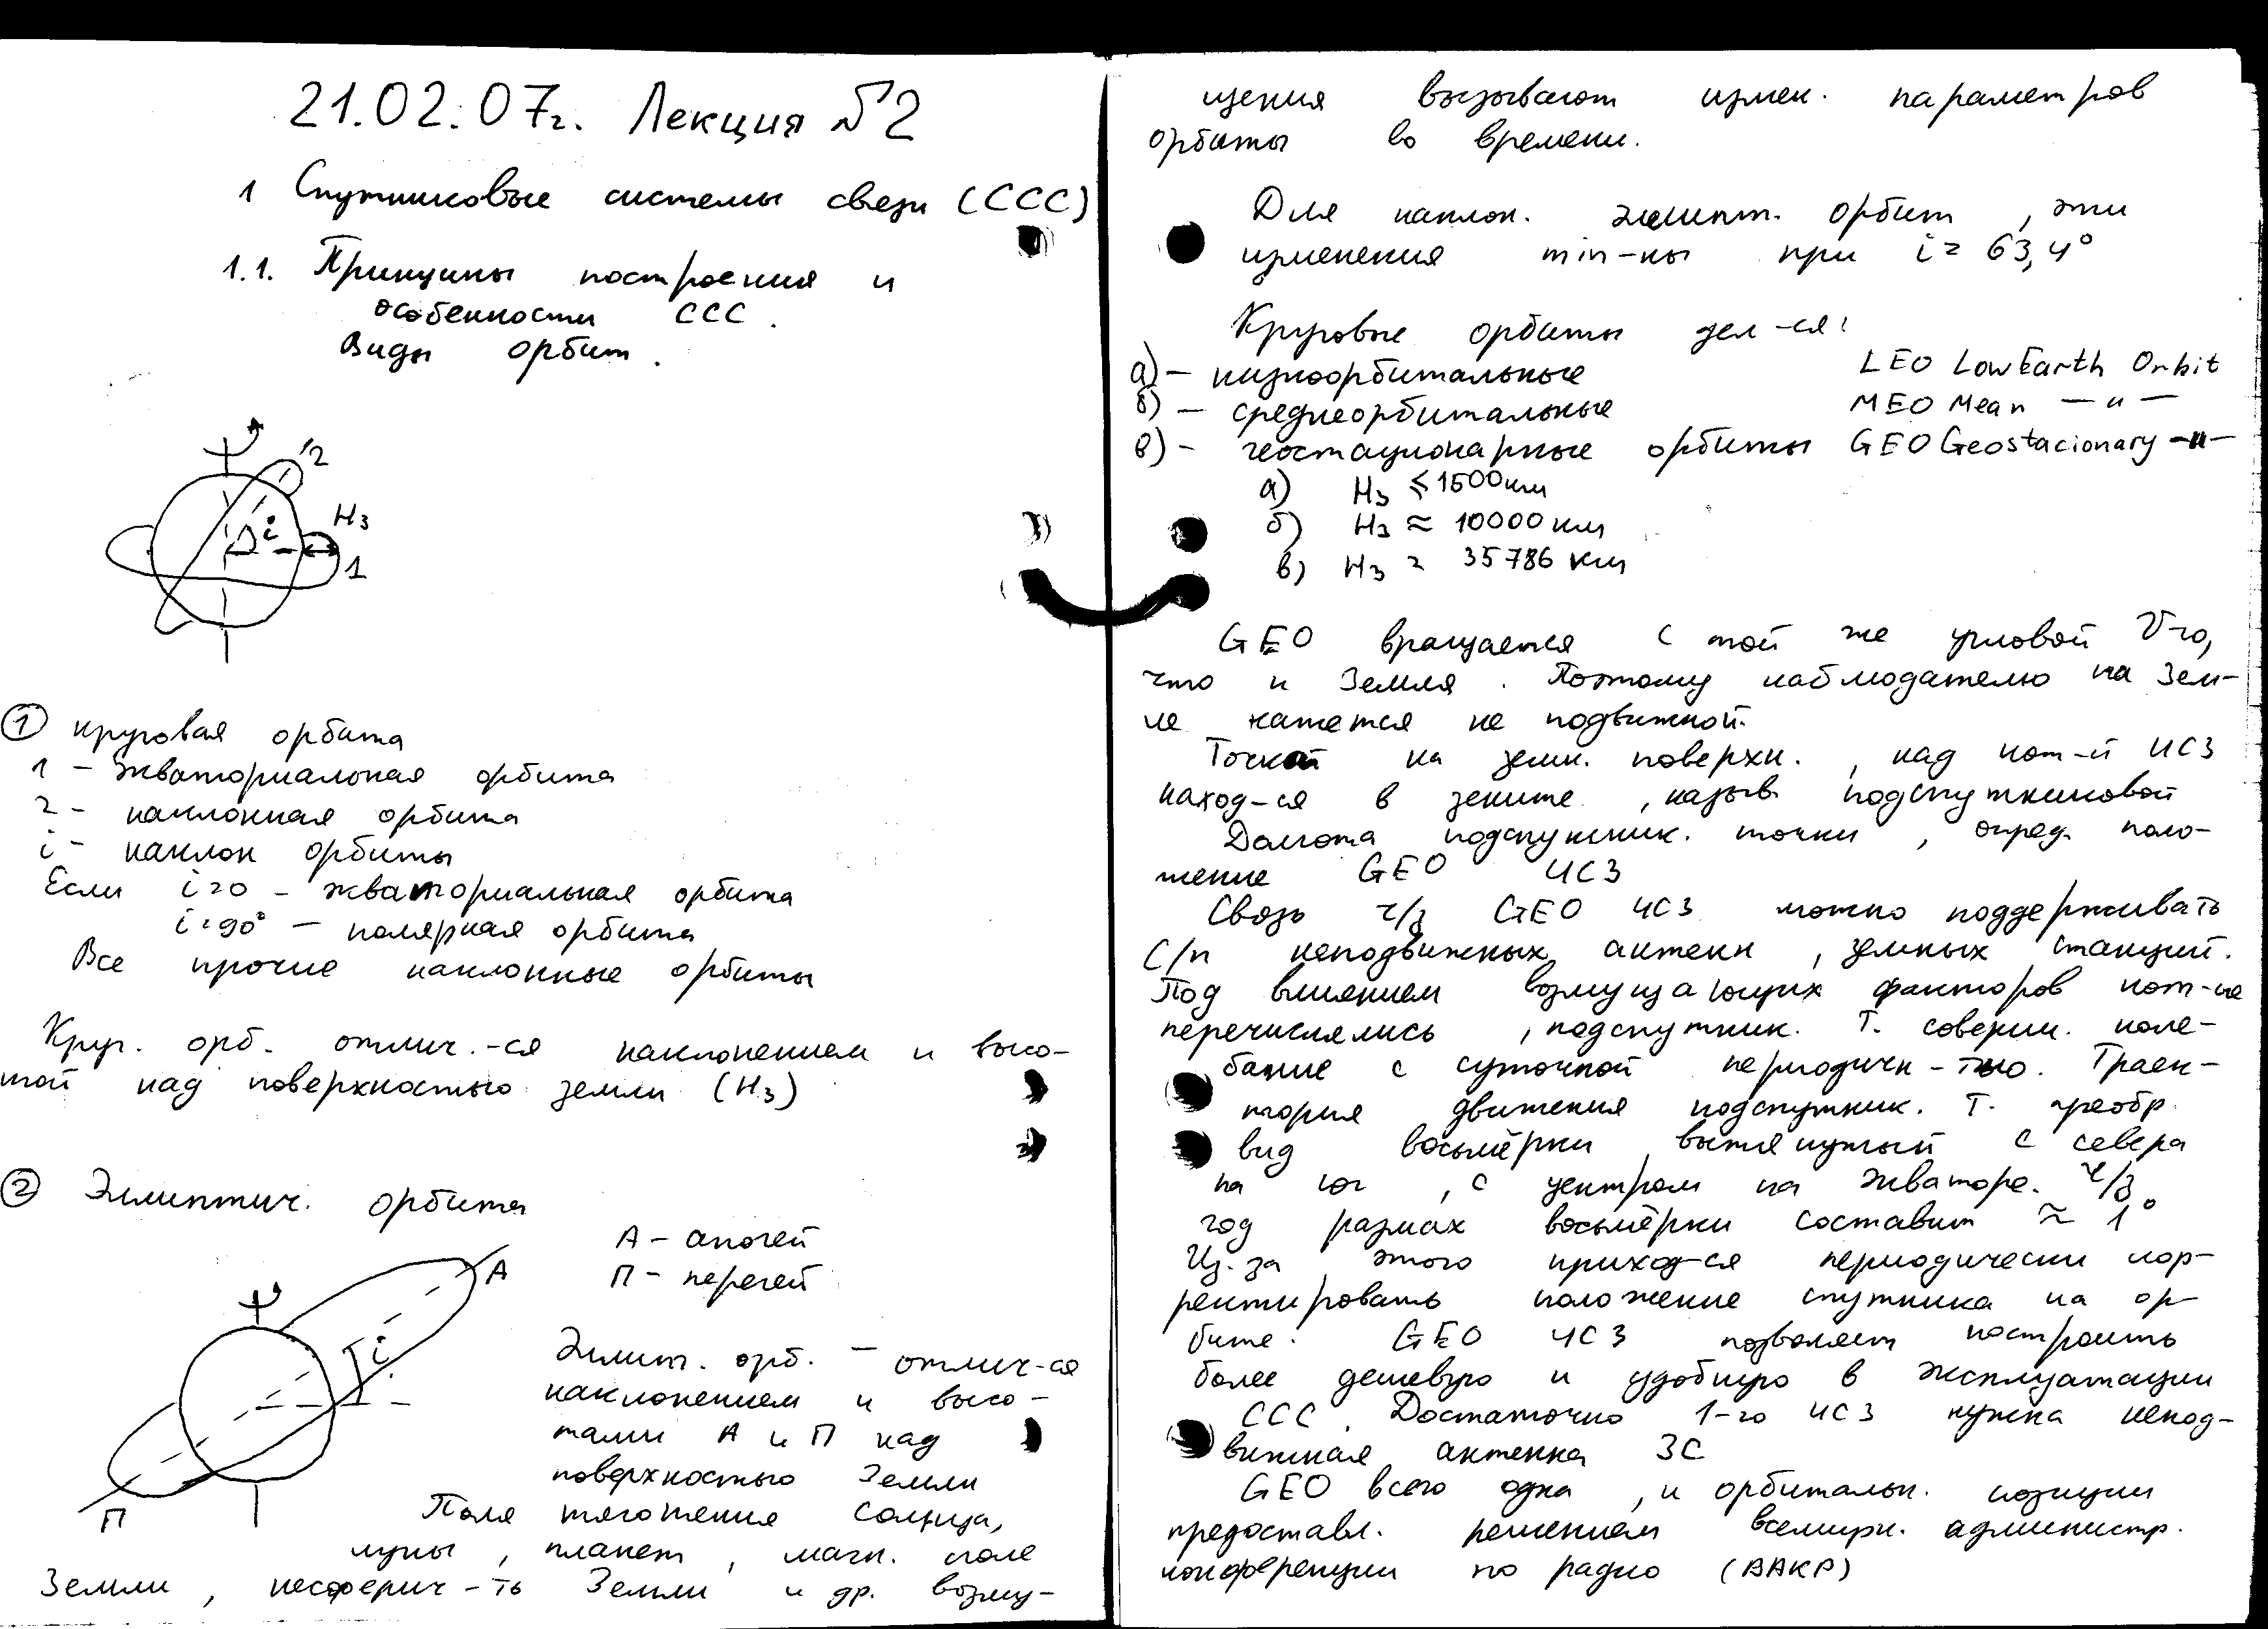 21.02.07г. Лекция №2
1 Спутниковые системы связи (ССС)
1.1. Принципы построения и
особенности ССС.
Виды орбит.
2
i
H₃
1
① круговая орбита
1 – экваториальная орбита
2 – наклонная орбита
i – наклон орбиты
Если i=0 – экваториальная орбита
i=90° – полярная орбита
Все прочие наклонные орбиты
Круг. орб. отлич.-ся наклонением и высо-
той над поверхностью земли (H₃)
② Элиптич. орбита
А – апогей
П – перегей
A
i
П
Элипт. орб. – отлич-ся
наклонением и высо-
тами А и П над
поверхностью Земли
Поля тяготения Солнца,
луны, планет, магн. поле
Земли, несферич-ть Земли и др. возму-
щения вызывают измен. параметров
орбиты во времени.
Для наклон. элипт. орбит, эти
изменения min-ны при i= 63,4°
Круговые орбиты дел-ся:
а) – низкоорбитальные LEO Low Earth Orbit
б) – среднеорбитальные MEO Mean –"–
в) – геостационарные орбиты GEO Geostacionary –"–
а) H₃ ≤ 1500 км
б) H₃ ≈ 10000 км
в) H₃ = 35786 км
GEO вращается с той же угловой V-ю,
что и Земля. Поэтому наблюдателю на Зем-
ле кажется не подвижной.
Точкой на земн. поверхн., над кот-й ИСЗ
наход-ся в зените, назыв. подспутниковой
Долгота подспутник. точки, опред. поло-
жение GEO ИСЗ
Связь ч/з GEO ИСЗ можно поддерживать
с/п неподвижных антенн, земных станций.
Под влиянием возмущающих факторов кот-ые
перечислялись, подспутник. т. соверш. коле-
бание с суточной периодичн-тью. Траек-
тория движения подспутник. т. преобр.
вид восьмёрки вытянутый с севера
на юг, с центром на экваторе. ч/з
год размах восьмёрки составит ≈ 1°
Из-за этого приход-ся периодически кор-
ректировать положение спутника на ор-
бите. GEO ИСЗ позволяет построить
более дешевую и удобную в эксплуатации
ССС. Достаточно 1-го ИСЗ нужна непод-
вижная антенна ЗС
GEO всего одна, и орбитальн. позиции
предоставл. решением всемирн. администр.
конференции по радио (ВАКР)